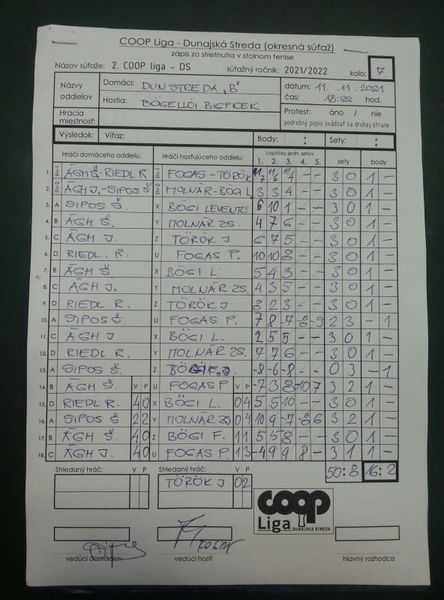 COOP Liga - Dunajská Streda (okresná súťaž)
zápis zo stretnutia v stolnom tenise
Názov súťaže: 2. COOP liga - DS súťažný ročník: 2021/2022 kolo: 7
Názvy oddielov Domáci: DUN. STREDA "B" dátum: 11. 11. 2021
Hostia: čas: hod.
Hracia miestnosť: Protest: áno / nie
podrobný popis uvádzať na druhej strane
Výsledok: Víťaz: Body: : Sety: :
Hráči domáceho oddielu: Hráči hosťujúceho oddielu: Loptičky jedn. setov sety body
1. 2. 3. 4. 5.
1. ÁGH Š-RIEDL R FOGAS-TÖRÖK 11/7 11/6 11/4 - - 3 0 1 -
2. ÁGH J.-SIPOS Š MOLNÁR-BÖGI L 3 3 4 - - 3 0 1 -
3. A SIPOS Š. X BÖGI LEVENTE 6 10 1 - - 3 0 1 -
4. B ÁGH Š. Y MOLNÁR ZS. 4 7 6 - - 3 0 1 -
5. C ÁGH J Z TÖRÖK J 6 7 5 - - 3 0 1 -
6. D RIEDL. R. U FOGAS P. 10 10 8 - - 3 0 1 -
7. B ÁGH Š X BÖGI L 5 4 3 - - 3 0 1 -
8. C ÁGH J. Y MOLNÁR ZS. 4 3 5 - - 3 0 1 -
9. D RIEDL R. Z TÖRÖK J 8 2 3 - - 3 0 1 -
10. A SIPOS Š. U FOGAS P. 7 8 -7 -8 -9 2 3 - 1
11. C ÁGH J X BÖGI L. 2 5 5 - - 3 0 1 -
12. D RIEDL R. Y MOLNÁR ZS. 7 7 6 - - 3 0 1 -
13. A SIPOS Š Z -8 -6 -8 - - 0 3 - 1
14. B ÁGH Š. V P U FOGAS P V P -7 3 8 -10 7 3 2 1 -
15. D RIEDL R. 4 0 X BÖGI L. 0 4 5 5 10 - - 3 0 1 -
16. A SIPOS Š 2 2 Y MOLNÁR ZS 0 4 10 9 -7 -8 6 3 2 1 -
17. B ÁGH Š 4 0 Z BÖGI F. 1 1 5 5 8 - - 3 0 1 -
18. C ÁGH J. 4 0 U FOGAS P 1 3 -4 9 9 8 - 3 1 1 -
Striedaný hráč: V P Striedaný hráč: V P 50:8 16:2
TÖRÖK J 0 2
coop
Liga DUNAJSKÁ STREDA
vedúci domácich vedúci hostí hlavný rozhodca